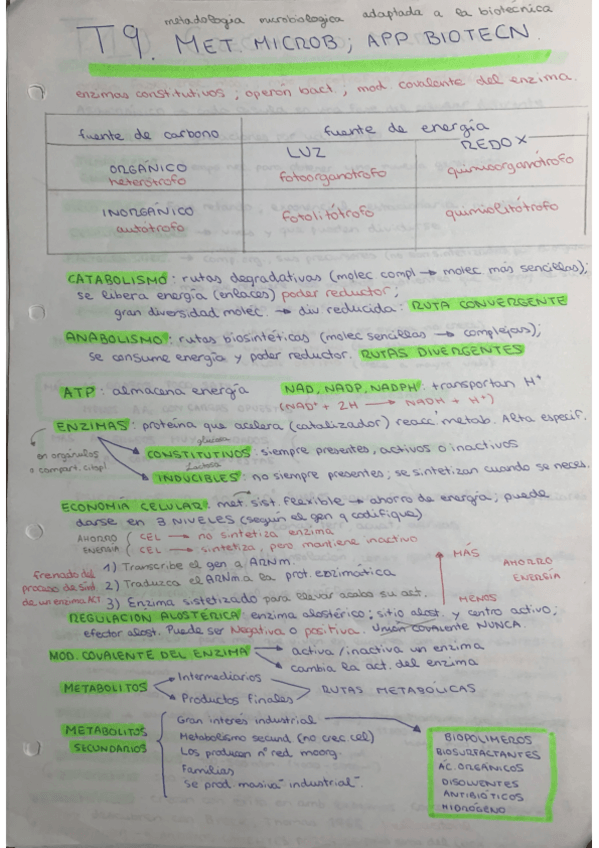 metadología microbiologica adaptada a la biotecnica
T9. MET. MICROB; APP BIOTECN.
enzimas constitutivos ; operón bact., mod. covalente del enzima.
fuente de carbono fuente de energía
LUZ REDOX
ORGÁNICO
heterótrofo fotoorganótrofo quimioorganótrofo
INORGÁNICO
autótrofo fotolitótrofo quimiolitótrofo
CATABOLISMO: rutas degradativas (molec compl → molec más sencillas);
se libera energía (enlaces) poder reductor;
gran diversidad molec. → div reducida: RUTA CONVERGENTE
ANABOLISMO: rutas biosintéticas (molec sencillas → complejas);
se consume energía y poder reductor. RUTAS DIVERGENTES
ATP: almacena energía NAD, NADP, NADPH: transportan H+
(NAD+ + 2H → NADH + H+)
ENZIMAS: proteína que acelera (catalizador) reacc metab. Alta especif.
en orgánulos
o compart. citopl
glucosa
CONSTITUTIVOS: siempre presentes, activos o inactivos
Lactosa
INDUCIBLES: no siempre presentes; se sintetizan cuando se neces.
ECONOMÍA CELULAR: met. sist. flexible → ahorro de energía; puede
darse en 3 NIVELES (según el gen q codifique)
AHORRO ENERGÍA
CEL → no sintetiza enzima
CEL → sintetiza, pero mantiene inactivo
frenado del
proceso de sint
de un enzima ACT
1) Transcribe el gen a ARNm.
2) Traduzca el ARNm a la prot. enzimática
3) Enzima sistetizado para llevar acabo su act.
MÁS
AHORRO
ENERGÍA
MENOS
REGULACIÓN ALOSTÉRICA: enzima alostérico; sitio alost. y centro activo;
efector alost. Puede ser Negativa o positiva. Unión covalente NUNCA.
MOD. COVALENTE DEL ENZIMA → activa/inactiva un enzima
→ cambia la act. del enzima
METABOLITOS → Intermediarios
→ Productos finales
RUTAS METABÓLICAS
METABOLITOS
SECUNDARIOS
Gran interés industrial
Metabolismo secund (no crec cel)
Los producen nº red. moorg.
Familias
Se prod. masiva "industrial".
BIOPOLÍMEROS
BIOSURFACTANTES
ÁC. ORGÁNICOS
DISOLVENTES
ANTIBIÓTICOS
HIDRÓGENO